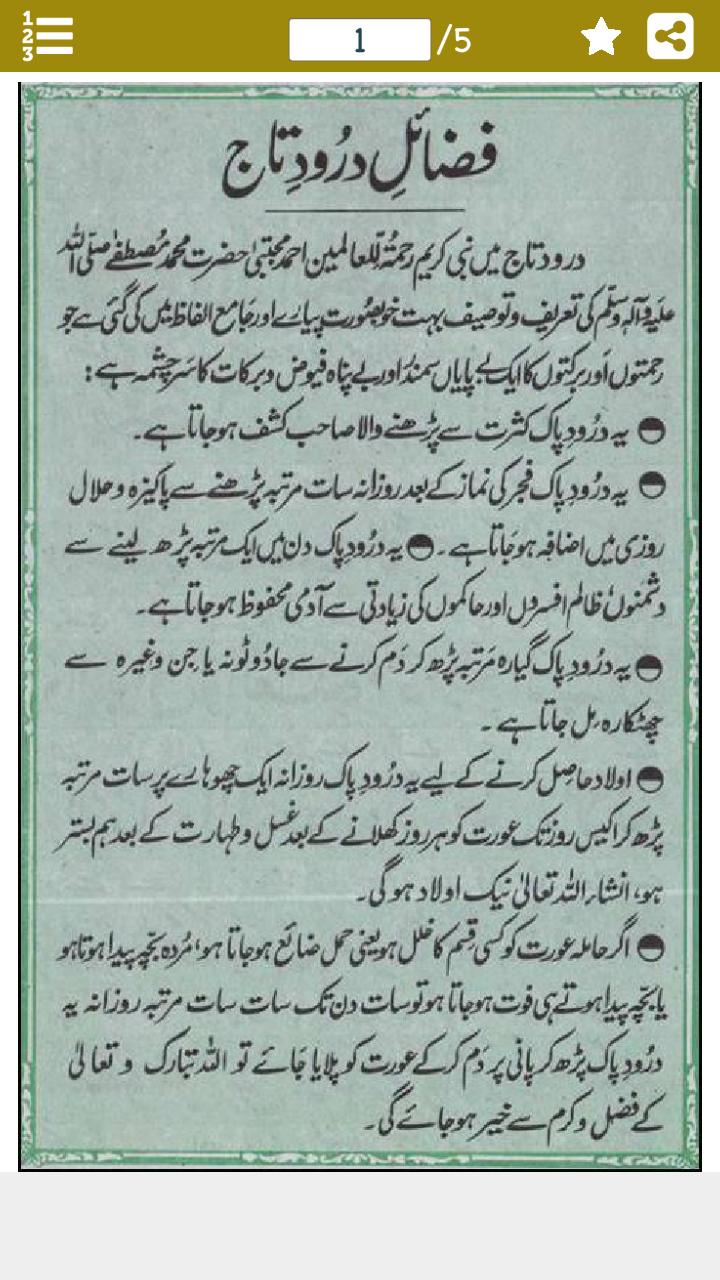 1
2
3
1 /5
فضائلِ درُودِ تاج
درود تاج میں نبی کریم رحمۃٌ للعالمین احمد مجتبیٰ حضرت محمد مُصطفےٰ صلّی اللہ
علیہ وآلہٖ وسلّم کی تعریف و توصیف بہت خوبصُورت پیارے اور جَامع الفاظ میں کی گئی ہے جو
رحمتوں اور برکتوں کا ایک بے پایاں سمندر اور بے پناہ فیوض و برکات کا سَرچشمہ ہے :
یہ درُودِ پاک کثرت سے پڑھنے والا صاحب کشف ہوجاتا ہے۔
یہ درُودِ پاک فجر کی نماز کے بعد روزانہ سات مرتبہ پڑھنے سے پاکیزہ و حلال
روزی میں اضافہ ہوجَاتا ہے ۔ یہ درُودِ پاک دن میں ایک مرتبہ پڑھ لینے سے
دشمنوں، ظالم افسروں اور حاکموں کی زیادتی سے آدمی محفوظ ہوجاتا ہے۔
یہ درُودِ پاک گیارہ مَرتبہ پڑھ کر دَم کرنے سے جادُو ٹونہ یا جن وغیرہ سے
چھٹکارہ مِل جاتا ہے ۔
اولاد حاصِل کرنے کے لیے یہ درُودِ پاک روزانہ ایک چھوہارے پر سات مرتبہ
پڑھ کر اکیس روز تک عورت کو ہر روز کھلانے کے بعد غسل و طہارت کے بعد ہم بستر
ہو، انشاء اللہ تعالیٰ نیک اولاد ہوگی۔
اگر حاملہ عورت کو کسی قِسم کا خلل ہو یعنی حمل ضائع ہوجاتا ہو، مُردہ بچّہ پیدا ہوتا ہو
یا بچّہ پیدا ہوتے ہی فوت ہوجاتا ہو تو سات دن تک سات سات مرتبہ روزانہ یہ
درُودِ پاک پڑھ کر پانی پر دَم کرکے عورت کو پلایا جَائے تو اللہ تبارک و تعالیٰ
کے فضل و کرم سے خیر ہوجائے گی۔